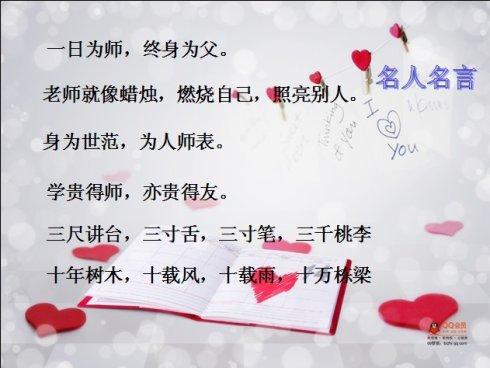 名人名言
一日为师，终身为父。
老师就像蜡烛，燃烧自己，照亮别人。
身为世范，为人师表。
学贵得师，亦贵得友。
三尺讲台，三寸舌，三寸笔，三千桃李
十年树木，十载风，十载雨，十万栋梁
Thinking
of You
I
You
QQ会员